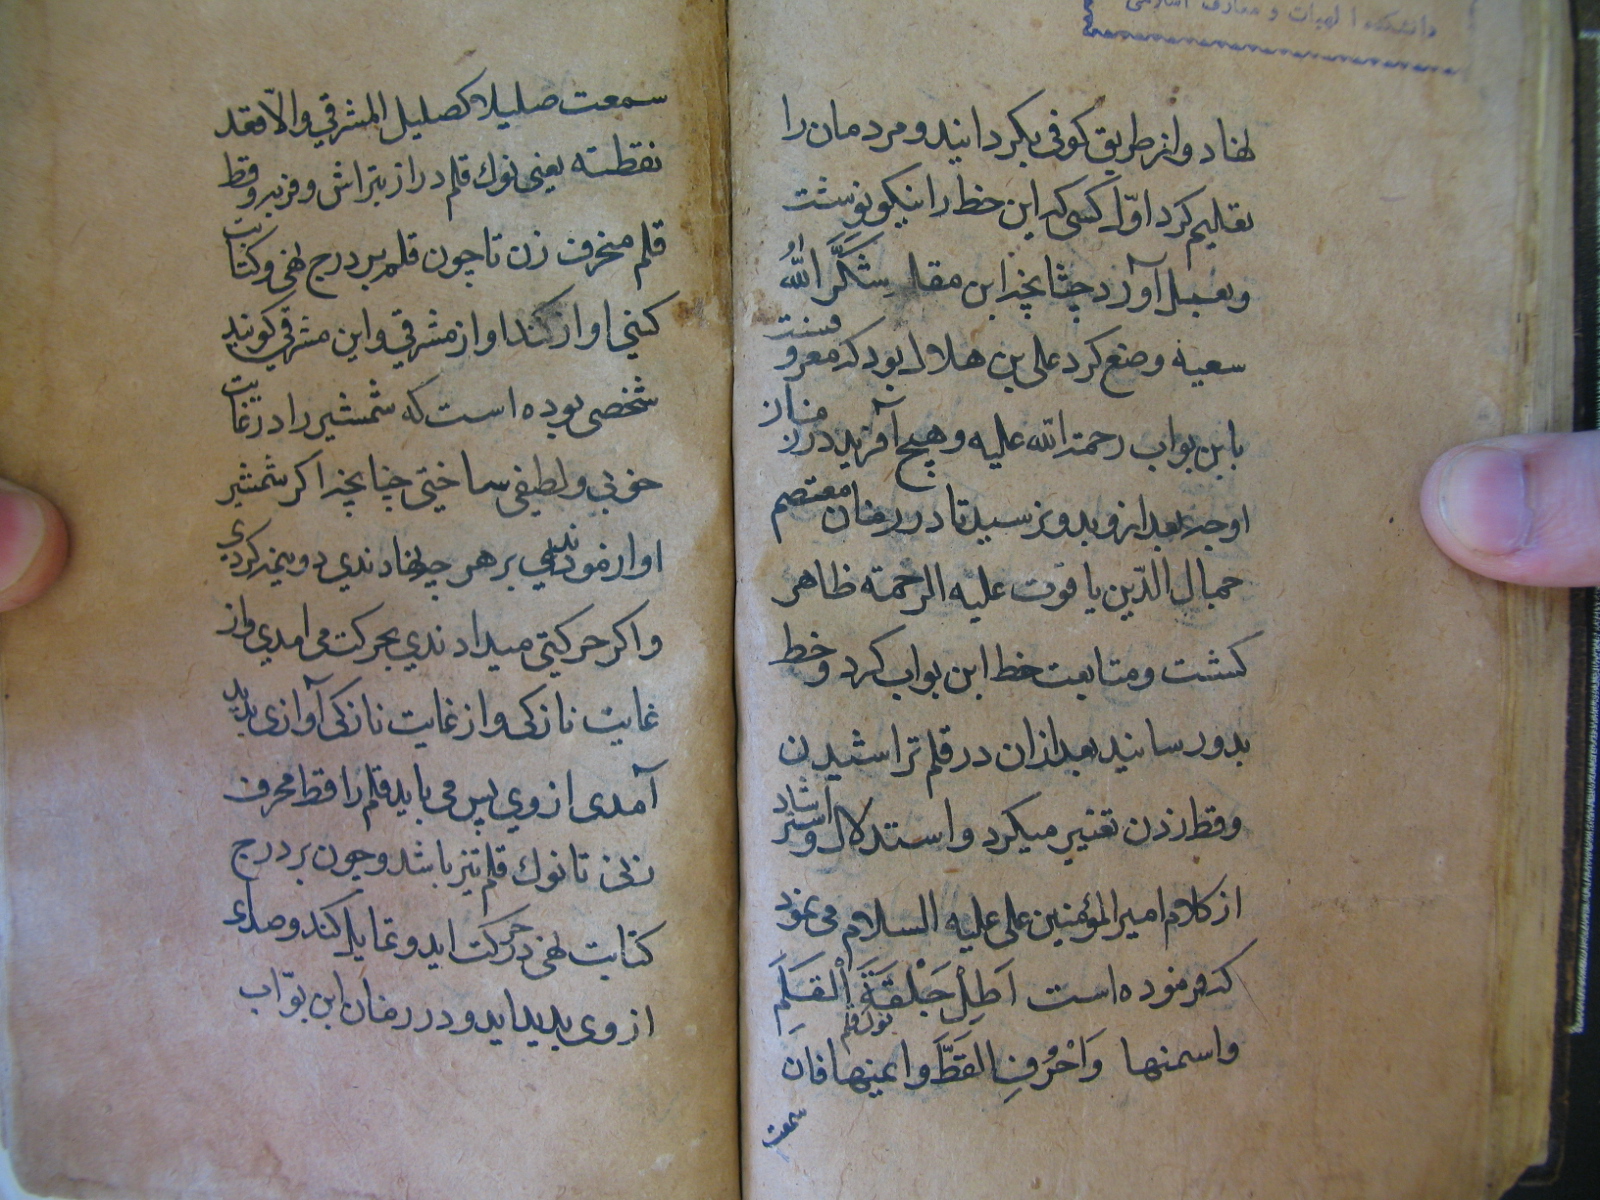 دانشکده الهیات و معارف اسلامی
نهاد و از طریق کوفی بکردانید و مردمان را
تعلیم کرد اوّل کسی که این خط را نیکو نوشت
و بعمل آورد چنانچه ابن مقله شَکَّرَ اللّه
سعیه وضع کرد علی بن هلال بود که معروفست
بابن بواب رحمة الله علیه و هیچ آفریده در زمان
او و بعد از و بدو نرسید تا در زمان معتصم
جمال الدّین یاقوت علیه الرحمة ظاهر
کشت و متابعت خط ابن بواب کرد و خط
بدو رسانید بعد از ان در قلم تراشیدن
و قط زدن تغییر میکرد و استدلال و استرشاد
از کلام امیر المؤمنین علی علیه السلام می نمود
که فرموده است اَطِلْ جَلْفَةَ الْقَلَمِ
نوک قلم
واسمنها وَاحْرُفِ القَطَّ وایمنها فان
سمعت
سمعت صلیلا کصلیل المشرقي والاّ فقد
نقطته یعنی نوك قلم دراز بتراش و فربه و قط
قلم منحرف زن تا چون قلم بر درج نهی و کتابت
کنی اواز کند اواز مشرقي و این مشرقي کویند
شخصی بوده است که شمشیر را در غایت
خوبی و لطیفی ساختی چنانچه اکر شمشیر
او ازمودندیی بر هر چه نهادندی دو نیمه کردی
و اکر حرکتی میدادندي بحرکت می امدي و از
غایت نازکی و از غایت نازکی آوازی پدید
آمدی از وي پس می باید قلم را قط محرف
زنی تا نوك قلم تیز باشد و چون بر درج
کتابت نهی در حرکت اید و تمایل کند و صدای
از وی پدید اید و در زمان ابن بوّاب